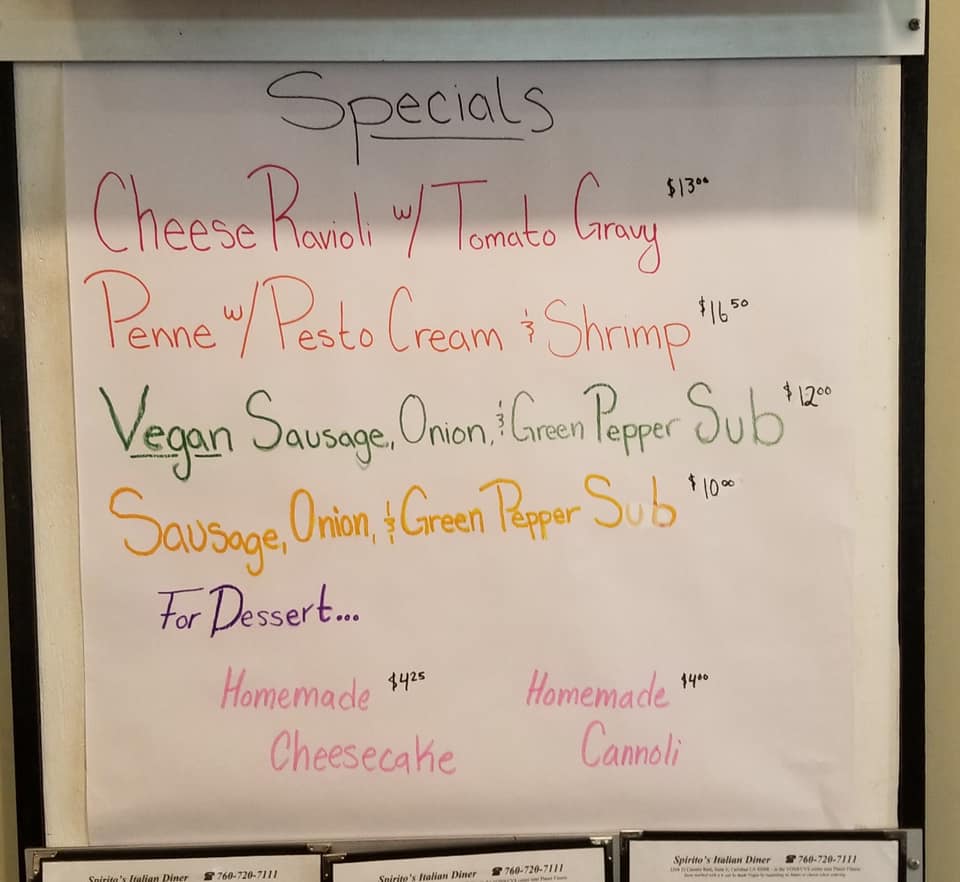 Specials
Cheese Ravioli w/ Tomato Gravy $13⁰⁰
Penne w/ Pesto Cream & Shrimp $16⁵⁰
Vegan Sausage, Onion, & Green Pepper Sub $12⁰⁰
Sausage, Onion, & Green Pepper Sub $10⁰⁰
For Dessert...
Homemade $4²⁵ Homemade $4⁰⁰
Cheesecake Cannoli
Spirito's Italian Diner ☎ 760-720-7111
Spirito's Italian Diner ☎ 760-720-7111
Spirito's Italian Diner ☎ 760-720-7111